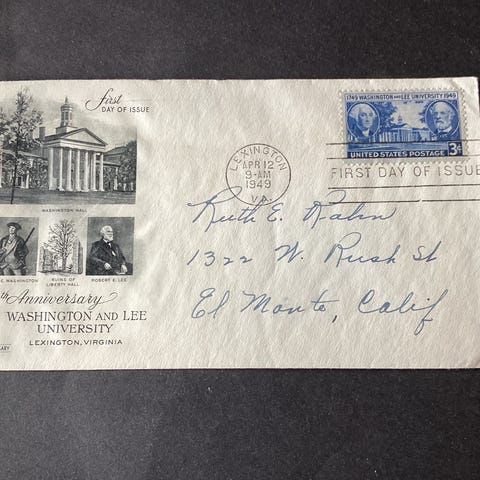 First
DAY OF ISSUE
WASHINGTON HALL
WASHINGTON
RUINS OF
LIBERTY HALL
ROBERT E. LEE
th Anniversary
WASHINGTON AND LEE
UNIVERSITY
LEXINGTON, VIRGINIA
LEXINGTON
APR 12
9-AM
1949
VA.
1749 WASHINGTON AND LEE UNIVERSITY 1949
UNITED STATES POSTAGE 3¢
FIRST DAY OF ISSUE
Ruth E. Rahn
1322 W. Rush St
El Monte, Calif